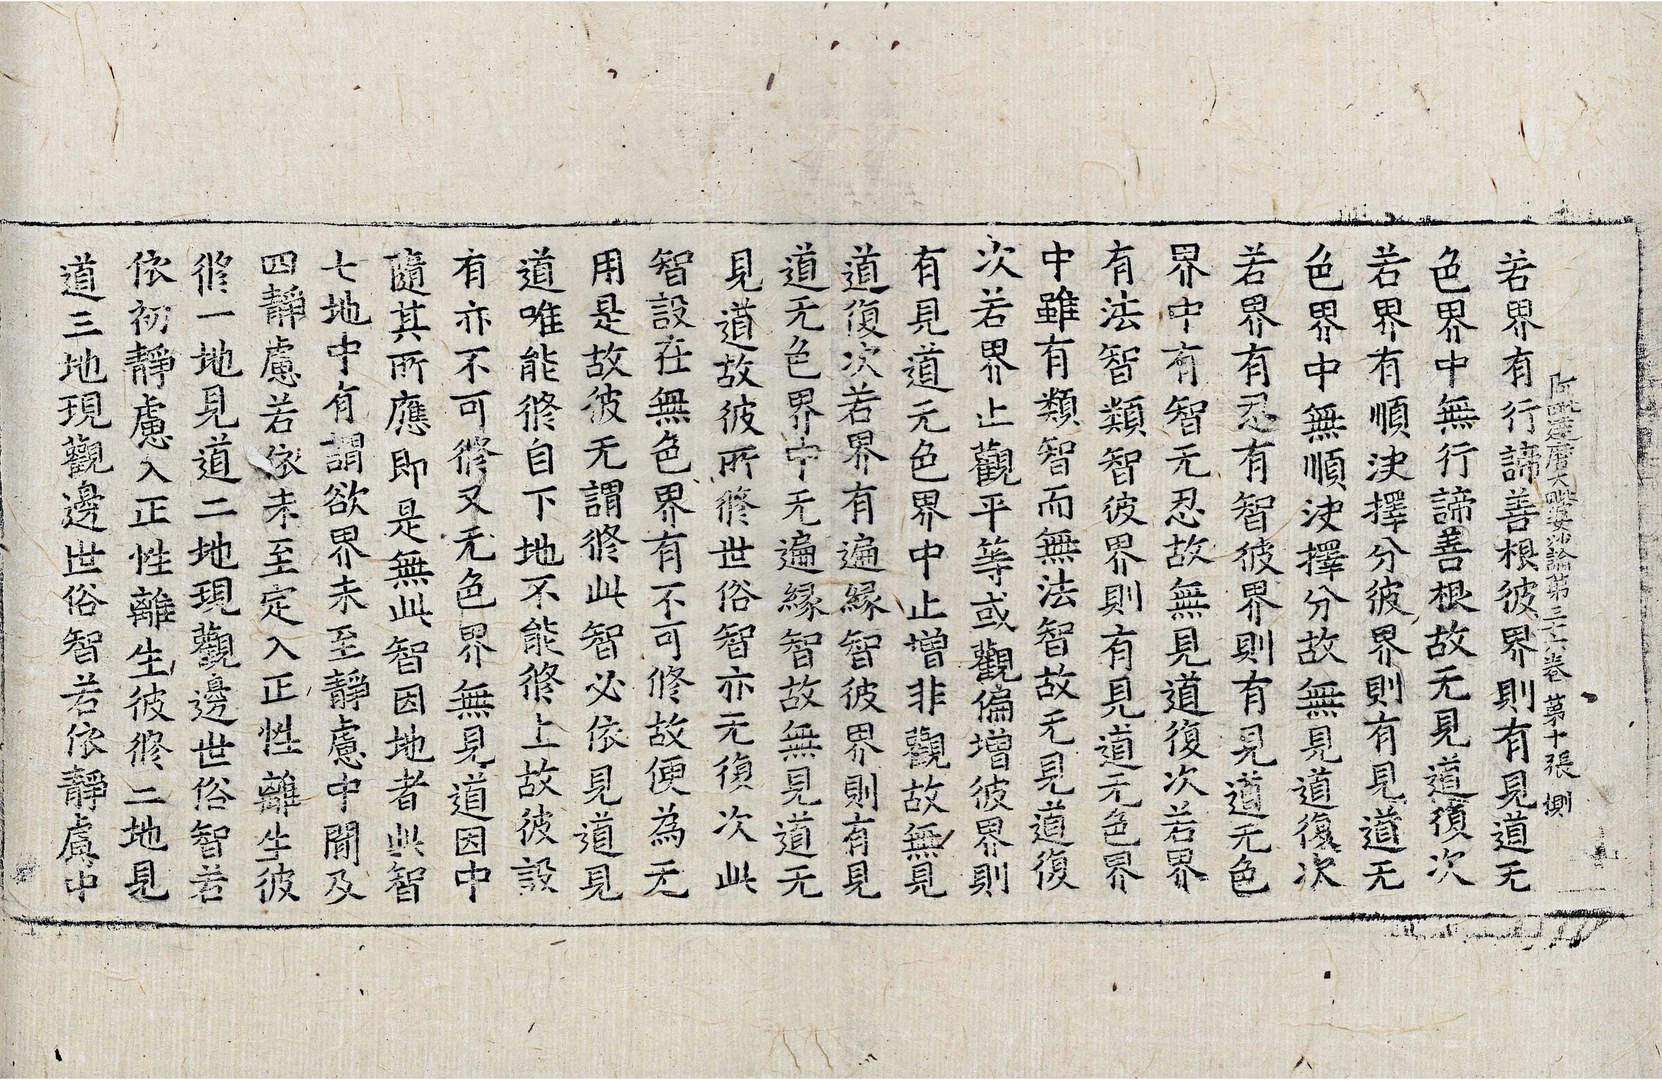 阿毗達磨大毗婆沙論第三十六卷 第十張 惻
若界有行諦善根彼界則有見道无
色界中無行諦善根故无見道復次
若界有順決擇分彼界則有見道无
色界中無順決擇分故無見道復次
若界有忍有智彼界則有見道无色
界中有智无忍故無見道復次若界
有法智類智彼界則有見道无色界
中雖有類智而無法智故无見道復
次若界止觀平等或觀偏增彼界則
有見道无色界中止增非觀故無見
道復次若界有遍縁智彼界則有見
道无色界中无遍縁智故無見道无
見道故彼所修世俗智亦无復次此
智設在無色界有不可修故便為无
用是故彼无謂修此智必依見道見
道唯能修自下地不能修上故彼設
有亦不可修又无色界無見道因中
隨其所應即是無此智因地者此智
七地中有謂欲界未至靜慮中閒及
四靜慮若依未至定入正性離生彼
修一地見道二地現觀邊世俗智若
依初靜慮入正性離生彼修二地見
道三地現觀邊世俗智若依靜慮中